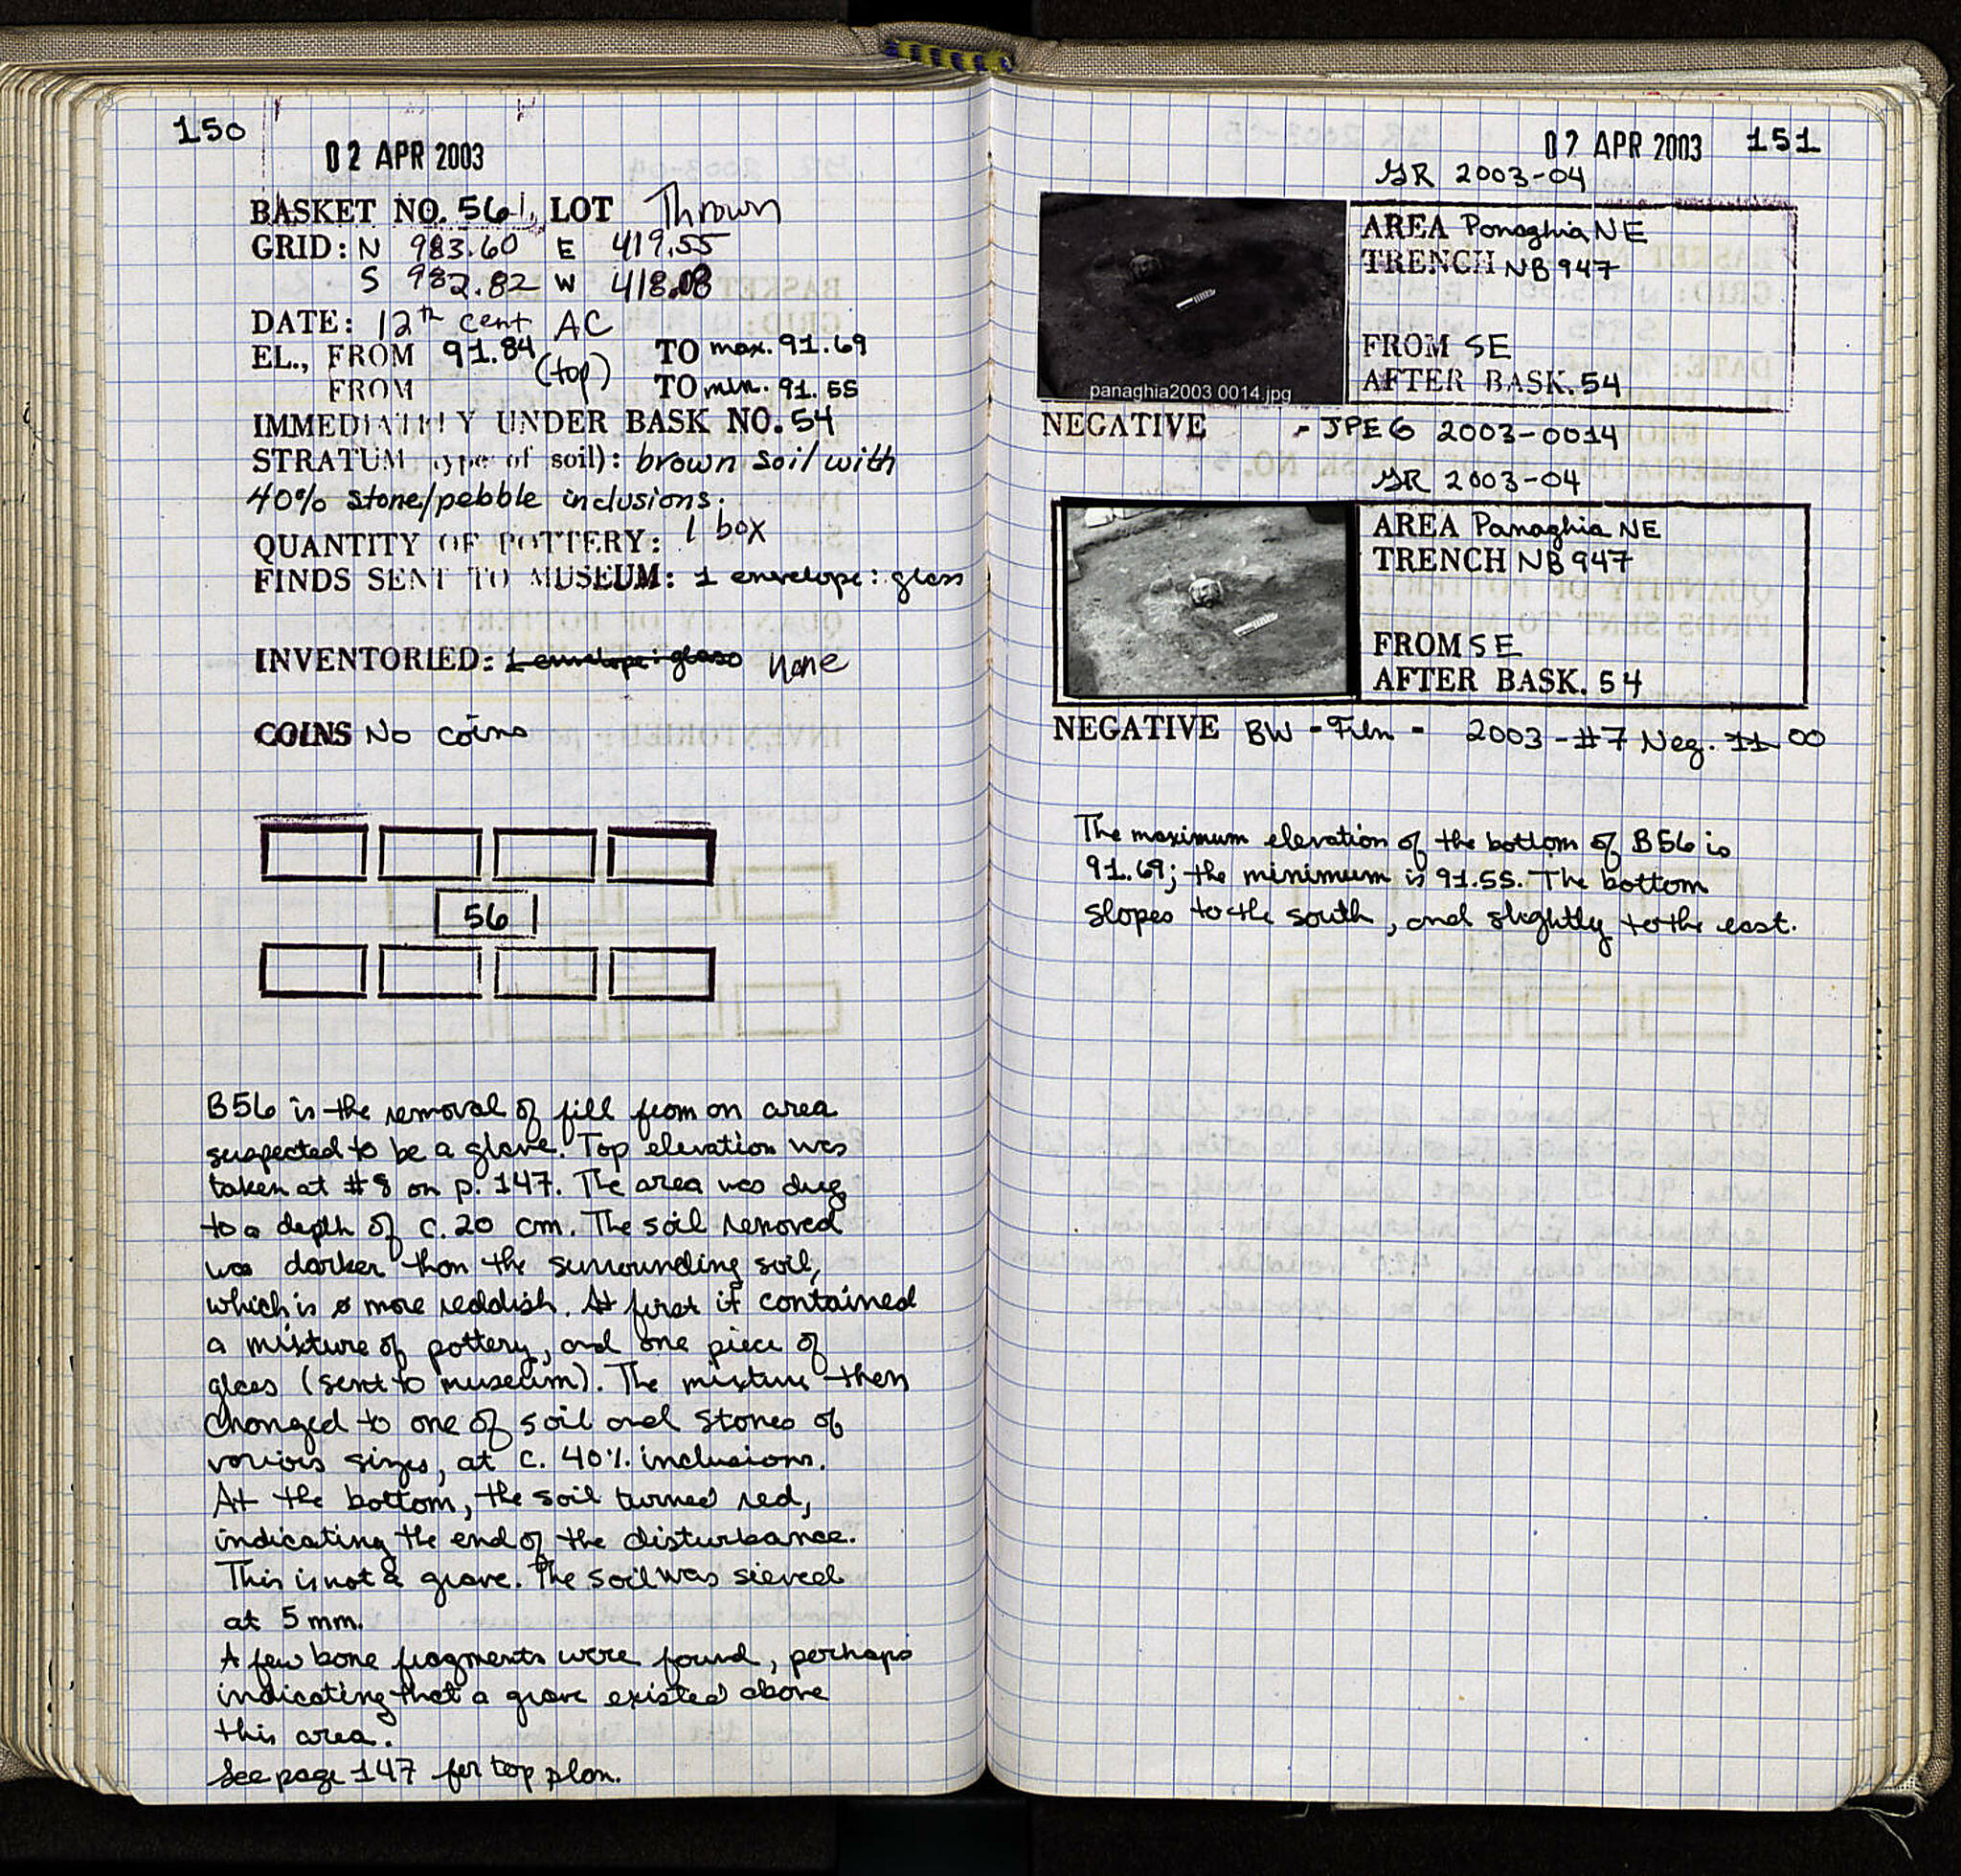 150
02 APR 2003
BASKET NO. 56 LOT Thrown
GRID: N 983.60 E 419.55
S 982.82 W 418.08
DATE: 12th cent AC
EL., FROM 91.84 (top) TO max. 91.69
FROM TO min. 91.55
IMMEDIATELY UNDER BASK NO. 54
STRATUM (type of soil): brown soil with
40% stone/pebble inclusions.
QUANTITY OF POTTERY: 1 box
FINDS SENT TO MUSEUM: 1 envelope: glass
INVENTORIED: 1 envelope: glass none
COINS No coins
56
B56 is the removal of fill from an area
suspected to be a glave. Top elevation was
taken at #8 on p. 147. The area was dug
to a depth of c. 20 cm. The soil removed
was darker than the surrounding soil,
which is more reddish. At first it contained
a mixture of pottery, and one piece of
glass (sent to museum). The mixture then
changed to one of soil and stones of
various sizes, at c. 40% inclusions.
At the bottom, the soil turned red,
indicating the end of the disturbance.
This is not a grave. The soil was sieved
at 5 mm.
A few bone fragments were found, perhaps
indicating that a grave existed above
this area.
See page 147 for top plan.
02 APR 2003 151
GR 2003-04
AREA Panaghia NE
TRENCH NB 947
FROM SE
AFTER BASK. 54
panaghia2003 0014.jpg
NEGATIVE - JPEG 2003-0014
GR 2003-04
AREA Panaghia NE
TRENCH NB 947
FROM SE
AFTER BASK. 54
NEGATIVE BW - Film - 2003 - #7 Neg. 11 00
The maximum elevation of the bottom of B56 is
91.69; the minimum is 91.55. The bottom
slopes to the south, and slightly to the east.